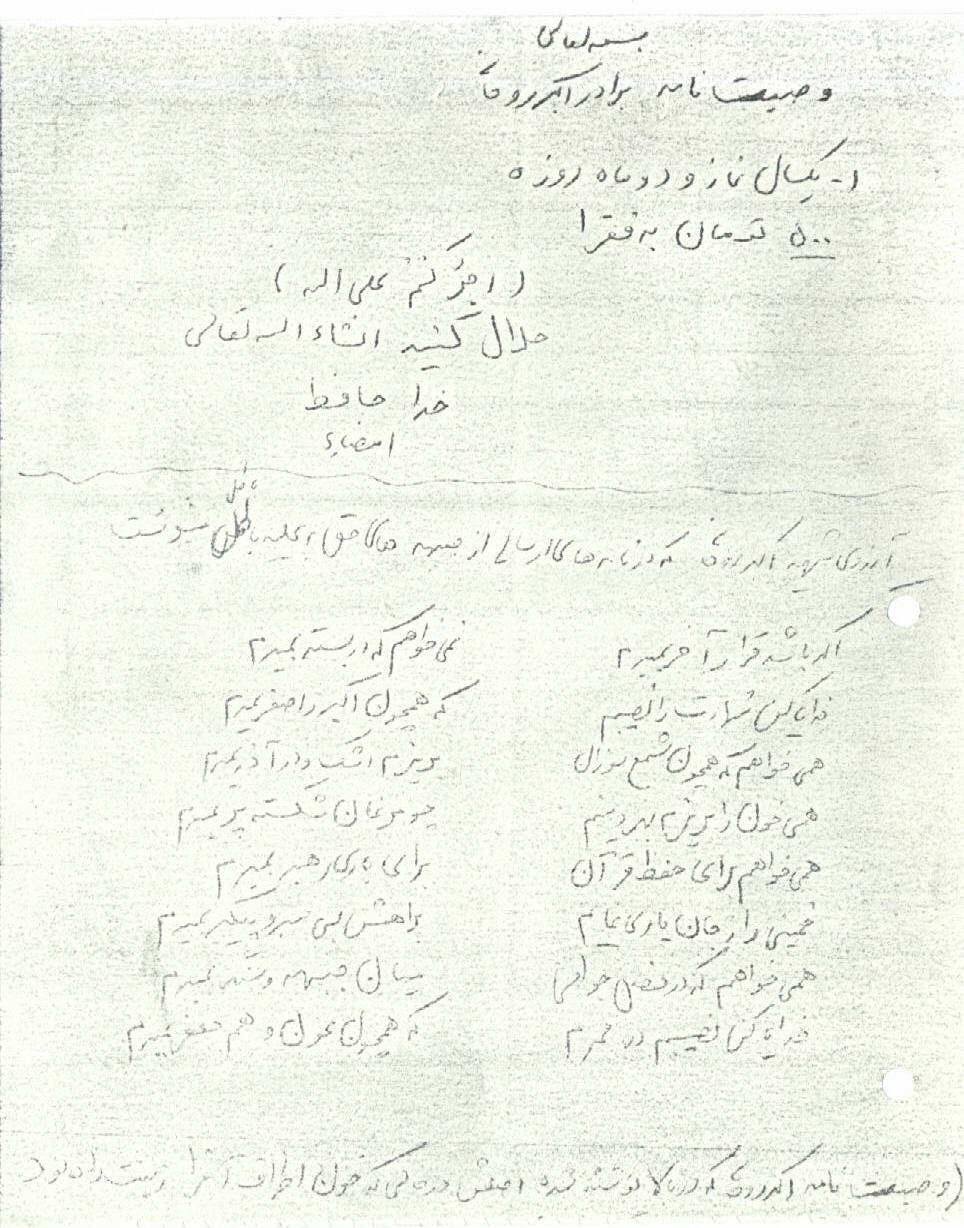 بسمه تعالی
وصیت نامه برادر اکبر
۱- یکسال نماز و دو ماه روزه
۵۰۰ تومان به فقرا
( اجرُکُم علی الله )
حلال کنید انشاء الله تعالی
خدا حافظ
امضاء
آرزوی شهید اکبر که در نامه های ارسالی از جبهه های حق بر علیه باطل مینوشت
اگر باشد قرار آخر بمیرم نمی خواهم که در بستر بمیرم
خدایا کن شهادت را نصیبم که همچون اکبر و اصغر بمیرم
همی خواهم که همچون شمع سوزان بریزم اشک و در آذر بمیرم
همی خون را بریزم بهر دینم چو مرغان شکسته پر بمیرم
همی خواهم برای حفظ قرآن برای یاری رهبر بمیرم
خمینی را ز جان یاری نمایم براهش بی سر و پیکر بمیرم
همی خواهم که در فصل جوانی میان جبهه و سنگر بمیرم
خدایا کن نصیبم در محرم که همچون عون و هم جعفر بمیرم
(وصیت نامه اکبر که در بالا نوشته شده اصلش که خون اطراف آنرا زینت داده بود